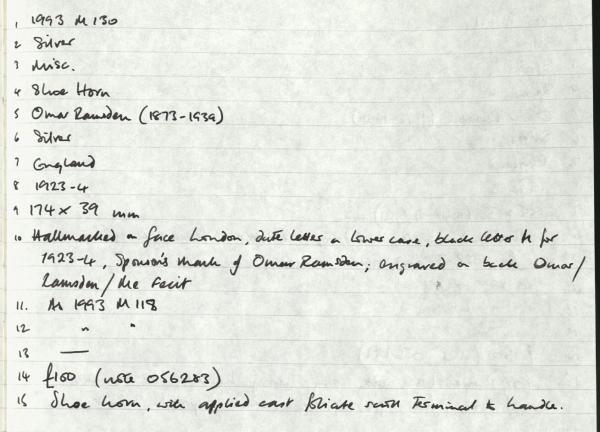 1 1993 M 130
2 Silver
3 Misc.
4 Shoe Horn
5 Omar Ramsden (1873-1939)
6 Silver
7 England
8 1923-4
9 174 x 39 mm
10 Hallmarked on face London, date letter a lower case, black letter h for
1923-4, Sponsor's mark of Omar Ramsden; engraved on back Omar/
Ramsden/Me Fecit
11. As 1993 M 118
12 " "
13 —
14 £100 (note 056283)
15 Shoe horn, with applied cast foliate scroll terminal to handle.